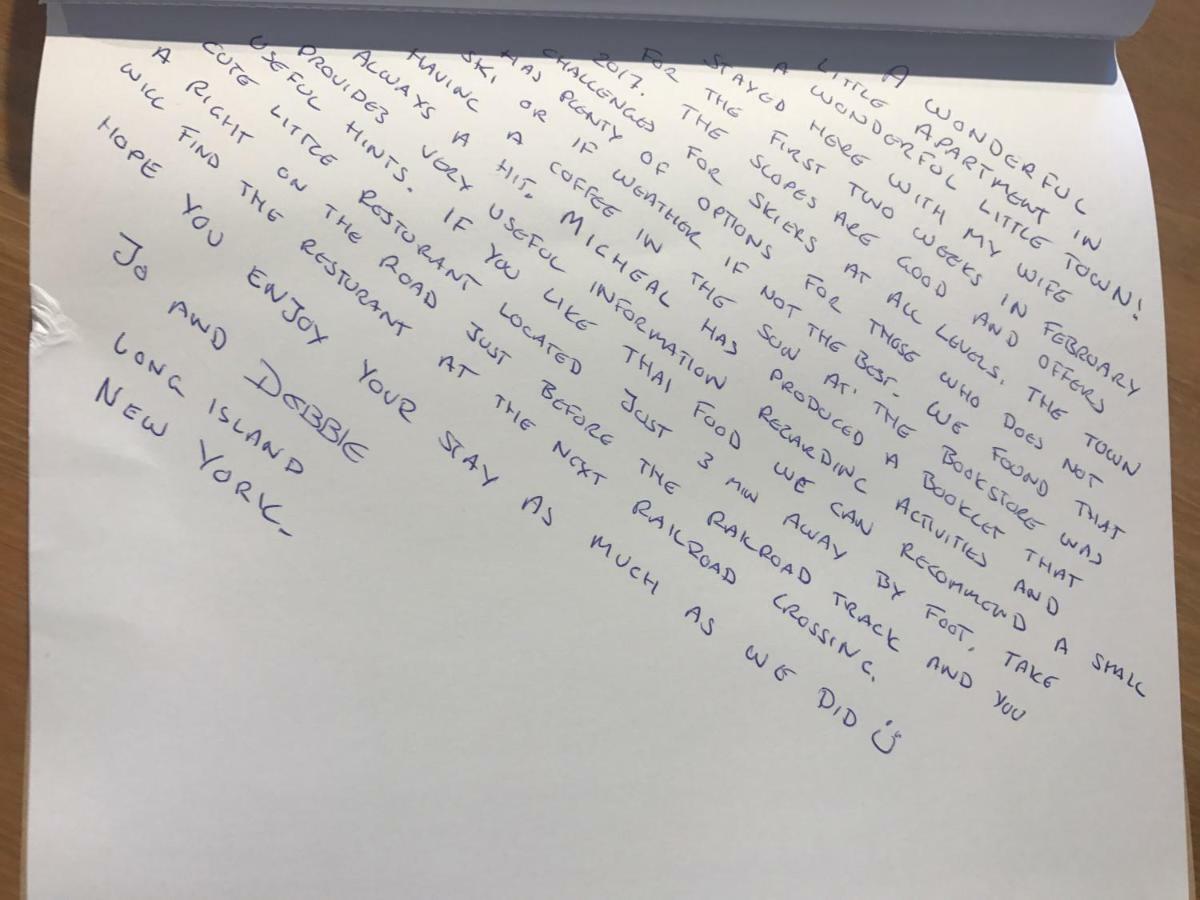 A WONDERFUL
LITTLE APARTMENT IN
A WONDERFUL LITTLE TOWN!
STAYED HERE WITH MY WIFE
FOR THE FIRST TWO WEEKS IN FEBRUARY
2017. THE SLOPES ARE GOOD AND OFFERS
CHALLENGES FOR SKIERS AT ALL LEVELS. THE TOWN
HAS PLENTY OF OPTIONS FOR THOSE WHO DOES NOT
SKI OR IF WEATHER IF NOT THE BEST. WE FOUND THAT
HAVING A COFFEE IN THE SUN AT THE BOOKSTORE WAS
ALWAYS A HIT. MICHEAL HAS PRODUCED A BOOKLET THAT
PROVIDES VERY USEFUL INFORMATION REGARDING ACTIVITIES AND
USEFUL HINTS. IF YOU LIKE THAI FOOD WE CAN RECOMMEND A SMALL
CUTE LITTLE RESTORANT LOCATED JUST 3 MIN AWAY BY FOOT, TAKE
A RIGHT ON THE ROAD JUST BEFORE THE RAILROAD TRACK AND YOU
WILL FIND THE RESTURANT AT THE NEXT RAILROAD CROSSING.
HOPE YOU ENJOY YOUR STAY AS MUCH AS WE DID :)
JO AND DEBBIE
LONG ISLAND
NEW YORK.